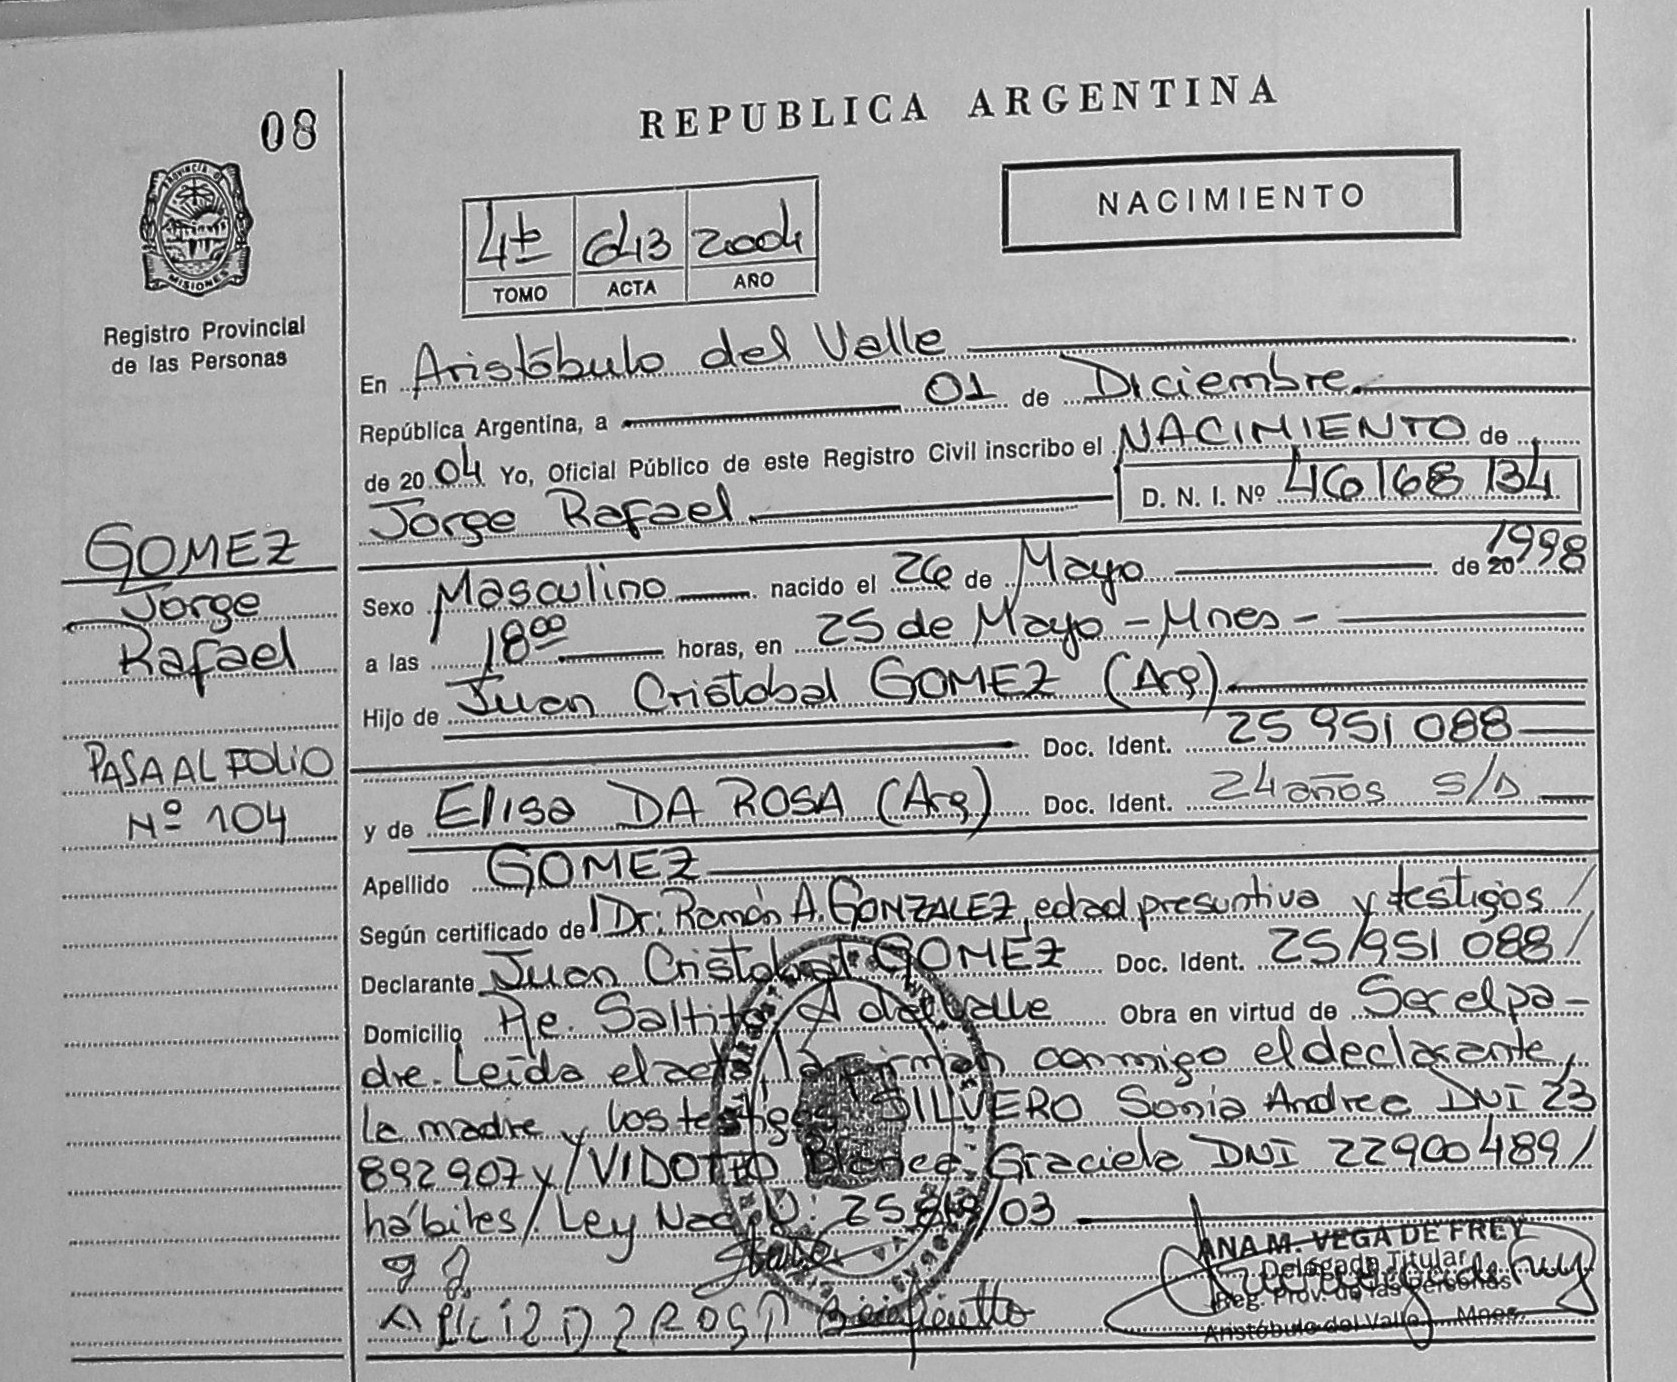 08
REPUBLICA ARGENTINA
PROVINCIA DE
MISIONES
Registro Provincial
de las Personas
NACIMIENTO
4t 643 2004
TOMO ACTA AÑO
En Aristóbulo del Valle
República Argentina, a 01 de Diciembre
de 2004 Yo, Oficial Público de este Registro Civil inscribo el NACIMIENTO de
Jorge Rafael D. N. I. Nº 46168134
GOMEZ
Jorge
Rafael
Sexo Masculino nacido el 26 de Mayo de 20 1998
a las 18 00 horas, en 25 de Mayo - Mnes -
Hijo de Juan Cristobal GOMEZ (Arg)
Doc. Ident. 25 951 088
PASA AL FOLIO
Nº 104
y de Elisa DA ROSA (Arg) Doc. Ident. 24 años s/D
Apellido GOMEZ
Según certificado de Dr. Ramón A. GONZALEZ, edad presuntiva y testigos/
Declarante Juan Cristobal GOMEZ Doc. Ident. 25/951 088/
Domicilio Pje. Saltito A del Valle Obra en virtud de Ser el pa-
dre. Leída el acta, la firman conmigo el declarante,
la madre y los testigos SILVERO Sonia Andrea DNI 23
892907 y/VIDOTTO Blanca Graciela DNI 22900489/
hábiles/. Ley Nac. 25819/03
ANA M. VEGA DE FREY
Delegada Titular
Reg. Prov. de las Personas
Aristóbulo del Valle Mnes.